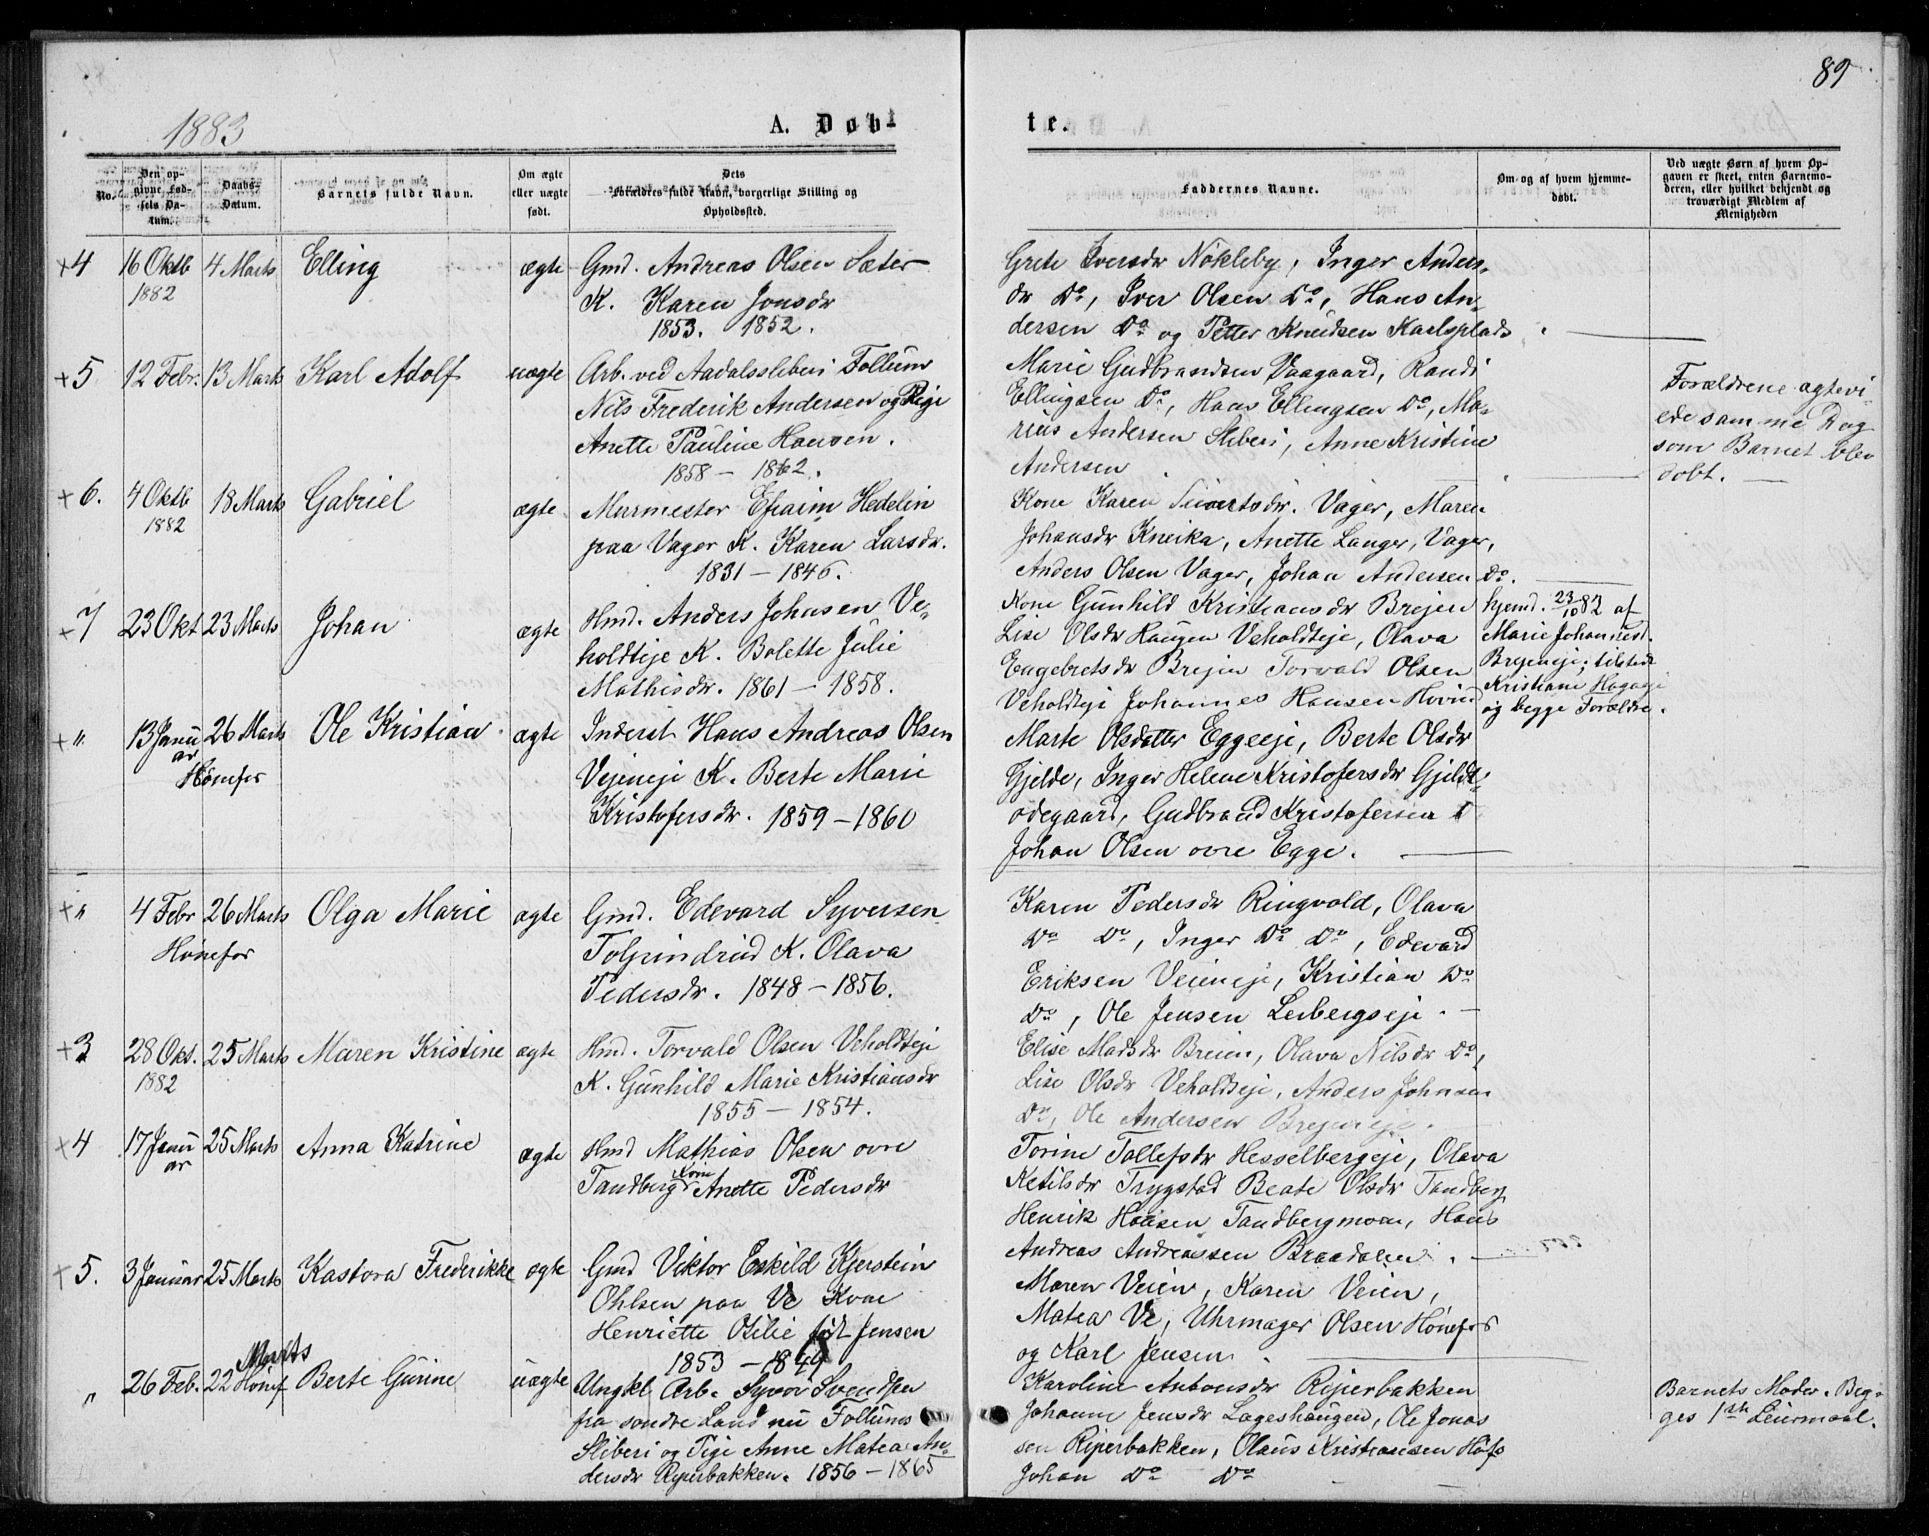 89
1883
A. Døbte.
No.
Den opgivne Fødsels Datum.
Daabs-Datum.
Barnets fulde Navn.
Om ægte eller uægte født.
Dets Forældres fulde Navn, borgerlige Stilling og Opholdssted.
Faddernes Navne.
Om og af hvem hjemmedøbt.
Ved uægte Børn af hvem Opgaven er skeet, enten Barnemoderen, eller hvilket bekjendt og troværdigt Medlem af Menigheden
+4 16 Oktb 1882 4 Marts Elling ægte
Gmd. Andreas Olsen Sæter
K. Karen Jonsdr
1853. 1852.
Grete Iversdr Nökleby, Inger Anders-
dr Do, Iver Olsen Do, Hans An-
dersen Do og Petter Knudsen Karlsplads
+5 12 Febr. 13 Marts Karl Adolf uægte
Arb. ved Aadalssliberi Follum
Nils Frederik Andersen og Pige
Anette Pauline Hansen.
1858 – 1862.
Marie Gudbrandsen Vaagaard, Randi
Ellingsen Do, Hans Ellingsen Do, Ma-
rius Andersen Sliberi, Anne Kristine
Andersen
Forældrene ægtevi-
ede samme Dag
som Barnet blev
dobt.
+6. 4 Oktb 1882 18 Marts Gabriel ægte
Murmester Efraim Hedelin
paa Vager K. Karen Larsdr.
1831 – 1846.
Kone Karen Siversdr. Vager, Maren
Johansdr Kneika, Anette Langer, Vager,
Anders Olsen Vager, Johan Andersen Do.
+7 23 Okt 23 Marts Johan ægte
Hmd. Anders Johnsen Ve-
holdteje K. Bolette Julie
Mathisdr. 1861 – 1858.
Kone Gunhild Kristiansdr Brejen
Lise Olsdr Haugen Veholdteje, Olava
Engebretsdr Brejen Torvald Olsen
Veholdteje Johannes Hansen Hvrind
hjemd. 23/10 82 af
Marie Johannesd.
Brejeneje; tilstede
Kristiane Hagaeje
og begge Forældre.
+ " 13 Janu ar Hönefos 26 Marts Ole Kristian ægte
Inderst Hans Andreas Olsen
Vejeneje K. Berte Marie
Kristofersdr. 1859 – 1860
Marte Olsdatter Eggeeje, Berte Olsdr
Gjelde, Inger Helene Kristofersdr Gjelds-
ödegaard, Gudbrand Kristofersen
Johan Olsen ovre Egge.
+ " 4 Febr Hönefos 26 Marts Olga Marie ægte
Gmd. Edevard Syversen
Tolpindrud K. Olava
Pedersdr. 1848 – 1856.
Karen Pedersdr Ringvold, Olava
Do Do, Inger Do Do, Edevard
Eriksen Veieneje, Kristian Do
Do, Ole Jensen Lerbergseje.
+3 28 Okt. 1882 25 Marts Maren Kristine ægte
Hmd. Torvald Olsen Veholdteje
K. Gunhild Marie Kristiansdr
1855 – 1854.
Elise Madsdr Breien, Olava Nilsdr Do,
Lise Olsdr Veholdteje, Anders Johnsen
Do, Ole Andersen Brejeneje.
+4 17 Janu ar 25 Marts Anna Katrine ægte
Hmd Mathias Olsen ovre
Tandberg Kone Anette Pedersdr
Torine Tollefsdr Hesselbergeje, Olava
Ketilsdr Trygstad Beate Olsdr Tandberg
Henrik Hansen Tandbergmoen, Hans
Andreas Andreassen Braadalen.
+5. 3 Januar 25 Marts Kastora Frederikke ægte
Gmd Viktor Eskild Kjerstein
Ohlsen paa Ve Kone
Henriette Otilie født Jensen
1853 – 1849
Maren Veien, Karen Veien,
Matea Ve, Uhrmager Olsen Hönefos
og Karl Jensen.
" 26 Feb. 22 Marts Hönef Berte Gurine uægte
Ungkl Arb. Syver Svendsen
fra söndre Land nu Follums
Sliberi og Pige Anne Matea An-
dersdr Riperbakken. 1856 – 1865
Karoline Antonsdr Riperbakken
Johanne Jensdr Lageshaugen, Ole Jonas
sen Riperbakken, Olaus Kristiansen Höfs
Johan Do Do
Barnets Moder. Beg-
ges 1ste Leiermaal.